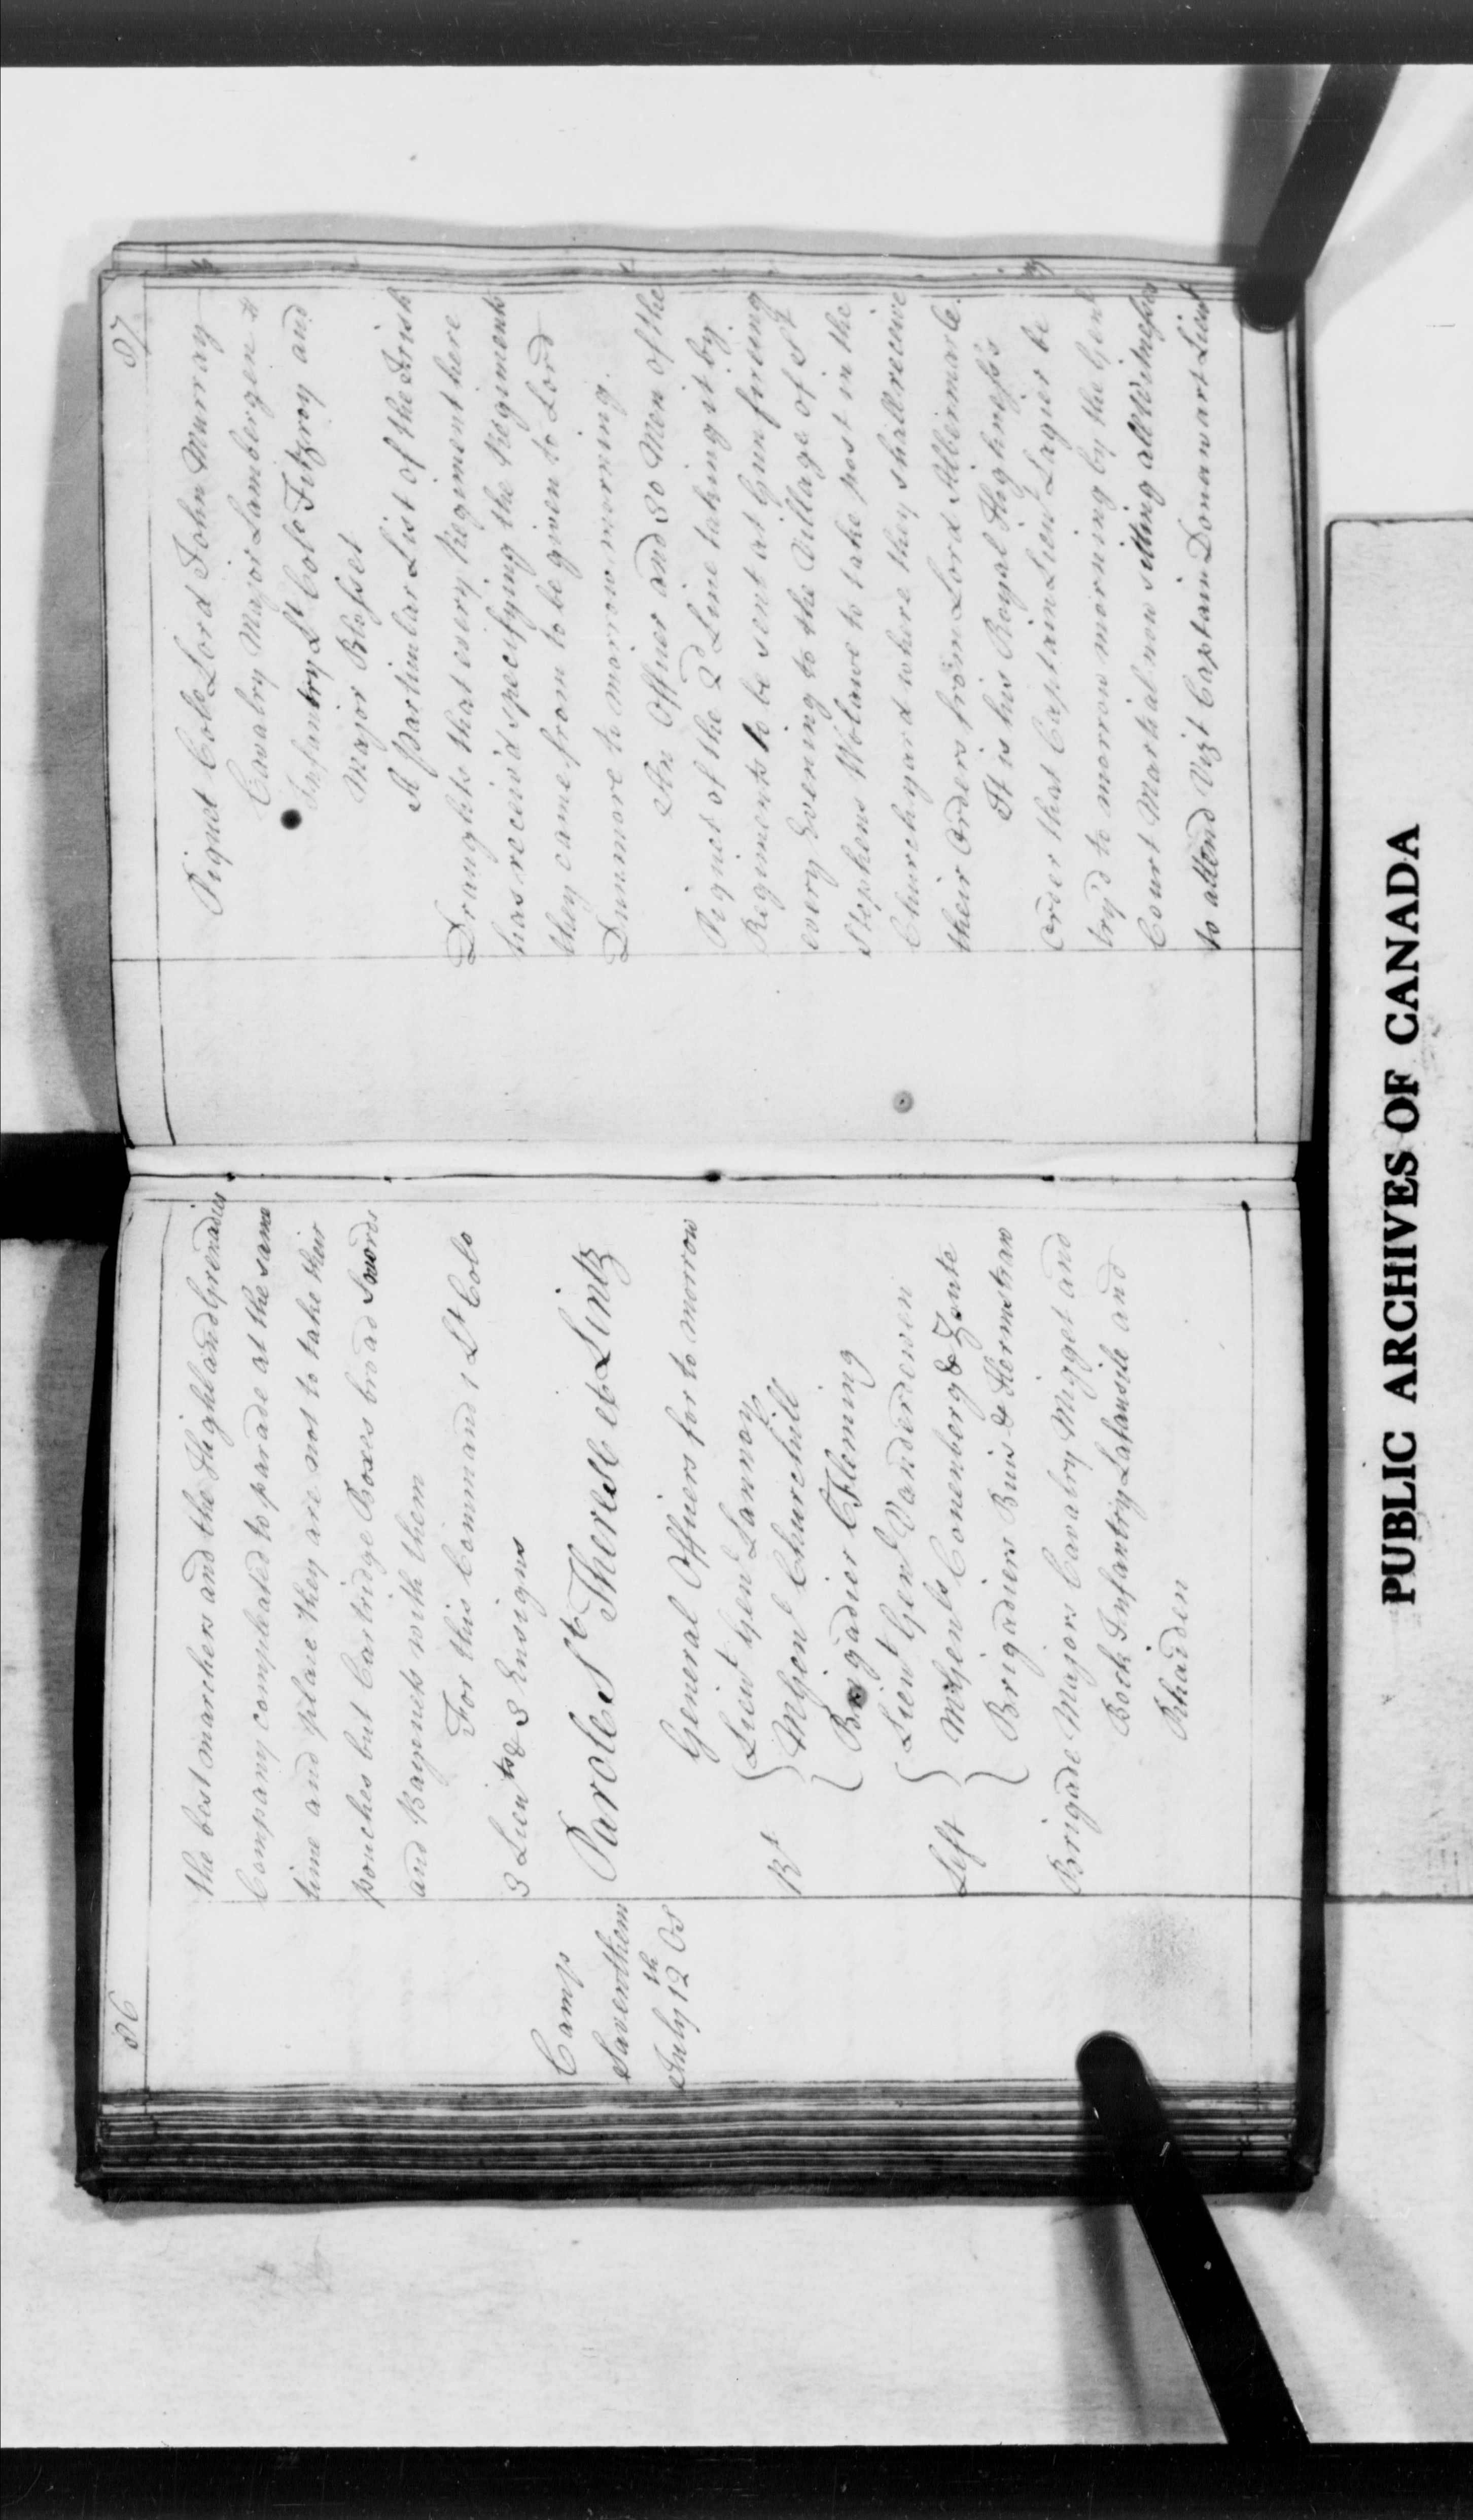 86
the best marchers and the Highland Grenadier
Company compleated to parade at the same
time and place they are not to take their
pouches but Cartridge Boxes broad Swords
and Baynets with them
For this Command 1 Lt Colo
3 Lieuts & 3 Ensigns
Camp
Saventhem
July 12th OS
Parole St Therese et Lintz
General Officers for to morrow
Rt
Lieut Genl Lannoy
MGenl Churchill
Brigadier Fleming
Left
Lieut Genl Vanderduen
MGenls Conenborg & Zoute
Brigadiers Buis & Hermstraw
Brigade Majors Cavalry Migget and
Bock Infantry Lafausile and
Rhadden
87
Piquet Colo Lord John Murray
Cavalry Major Lambergen
Infantry Lt Colo Fitzroy and
Major Blosset
A Particular List of the Irish
Draughts that every Regiment here
has receiv'd specifying the Regiments
they came from to be given to Lord
Dunmore to morrow morning.
An Officer and 30 Men of the
Piquet of the 2d Line taking it by
Regiments to be sent at Gunn fireing
every Evening to the Village of St
Stephens Wolawe to take post in the
Churchyard where they shall receive
their Orders from Lord Albermarle.
It is his Royal Highness's
Order that Captain Lieut Lagier be
try'd to morrow morning by the Genl
Court Martial now sitting all Witnesses
to attend Vizt Captain Domanwart Lieut
PUBLIC ARCHIVES OF CANADA